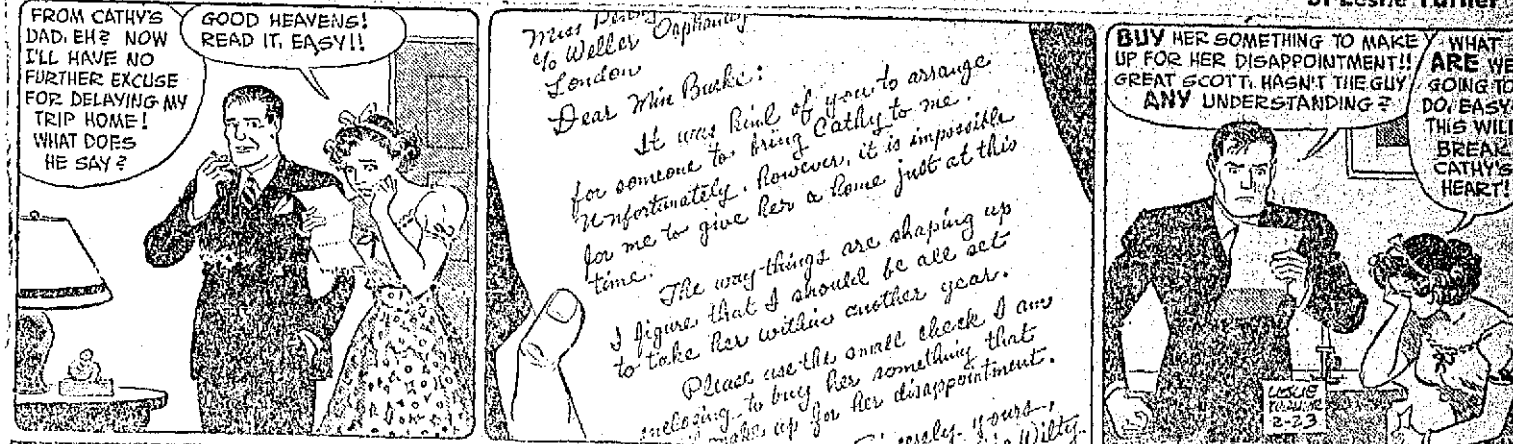 By Leslie Turner
FROM CATHY'S
DAD, EH? NOW
I'LL HAVE NO
FURTHER EXCUSE
FOR DELAYING MY
TRIP HOME!
WHAT DOES
HE SAY?
GOOD HEAVENS!
READ IT, EASY!!
Miss
c/o Weller Orphanage
London
Dear Miss Burke:
It was kind of you to arrange
for someone to bring Cathy to me.
Unfortunately, however, it is impossible
for me to give her a home just at this
time.
The way things are shaping up
I figure that I should be all set
to take her within another year.
Please use the small check I am
inclosing to buy her something that
make up for her disappointment.
Sincerely yours,
Wilty
BUY HER SOMETHING TO MAKE
UP FOR HER DISAPPOINTMENT!!
GREAT SCOTT, HASN'T THE GUY
ANY UNDERSTANDING?
WHAT
ARE WE
GOING TO
DO, EASY
THIS WILL
BREAK
CATHY'S
HEART!
LESLIE
TURNER
2-23